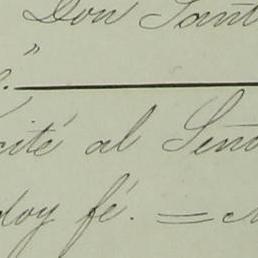 Don Sant
."
cité al Seño
doy fé. =